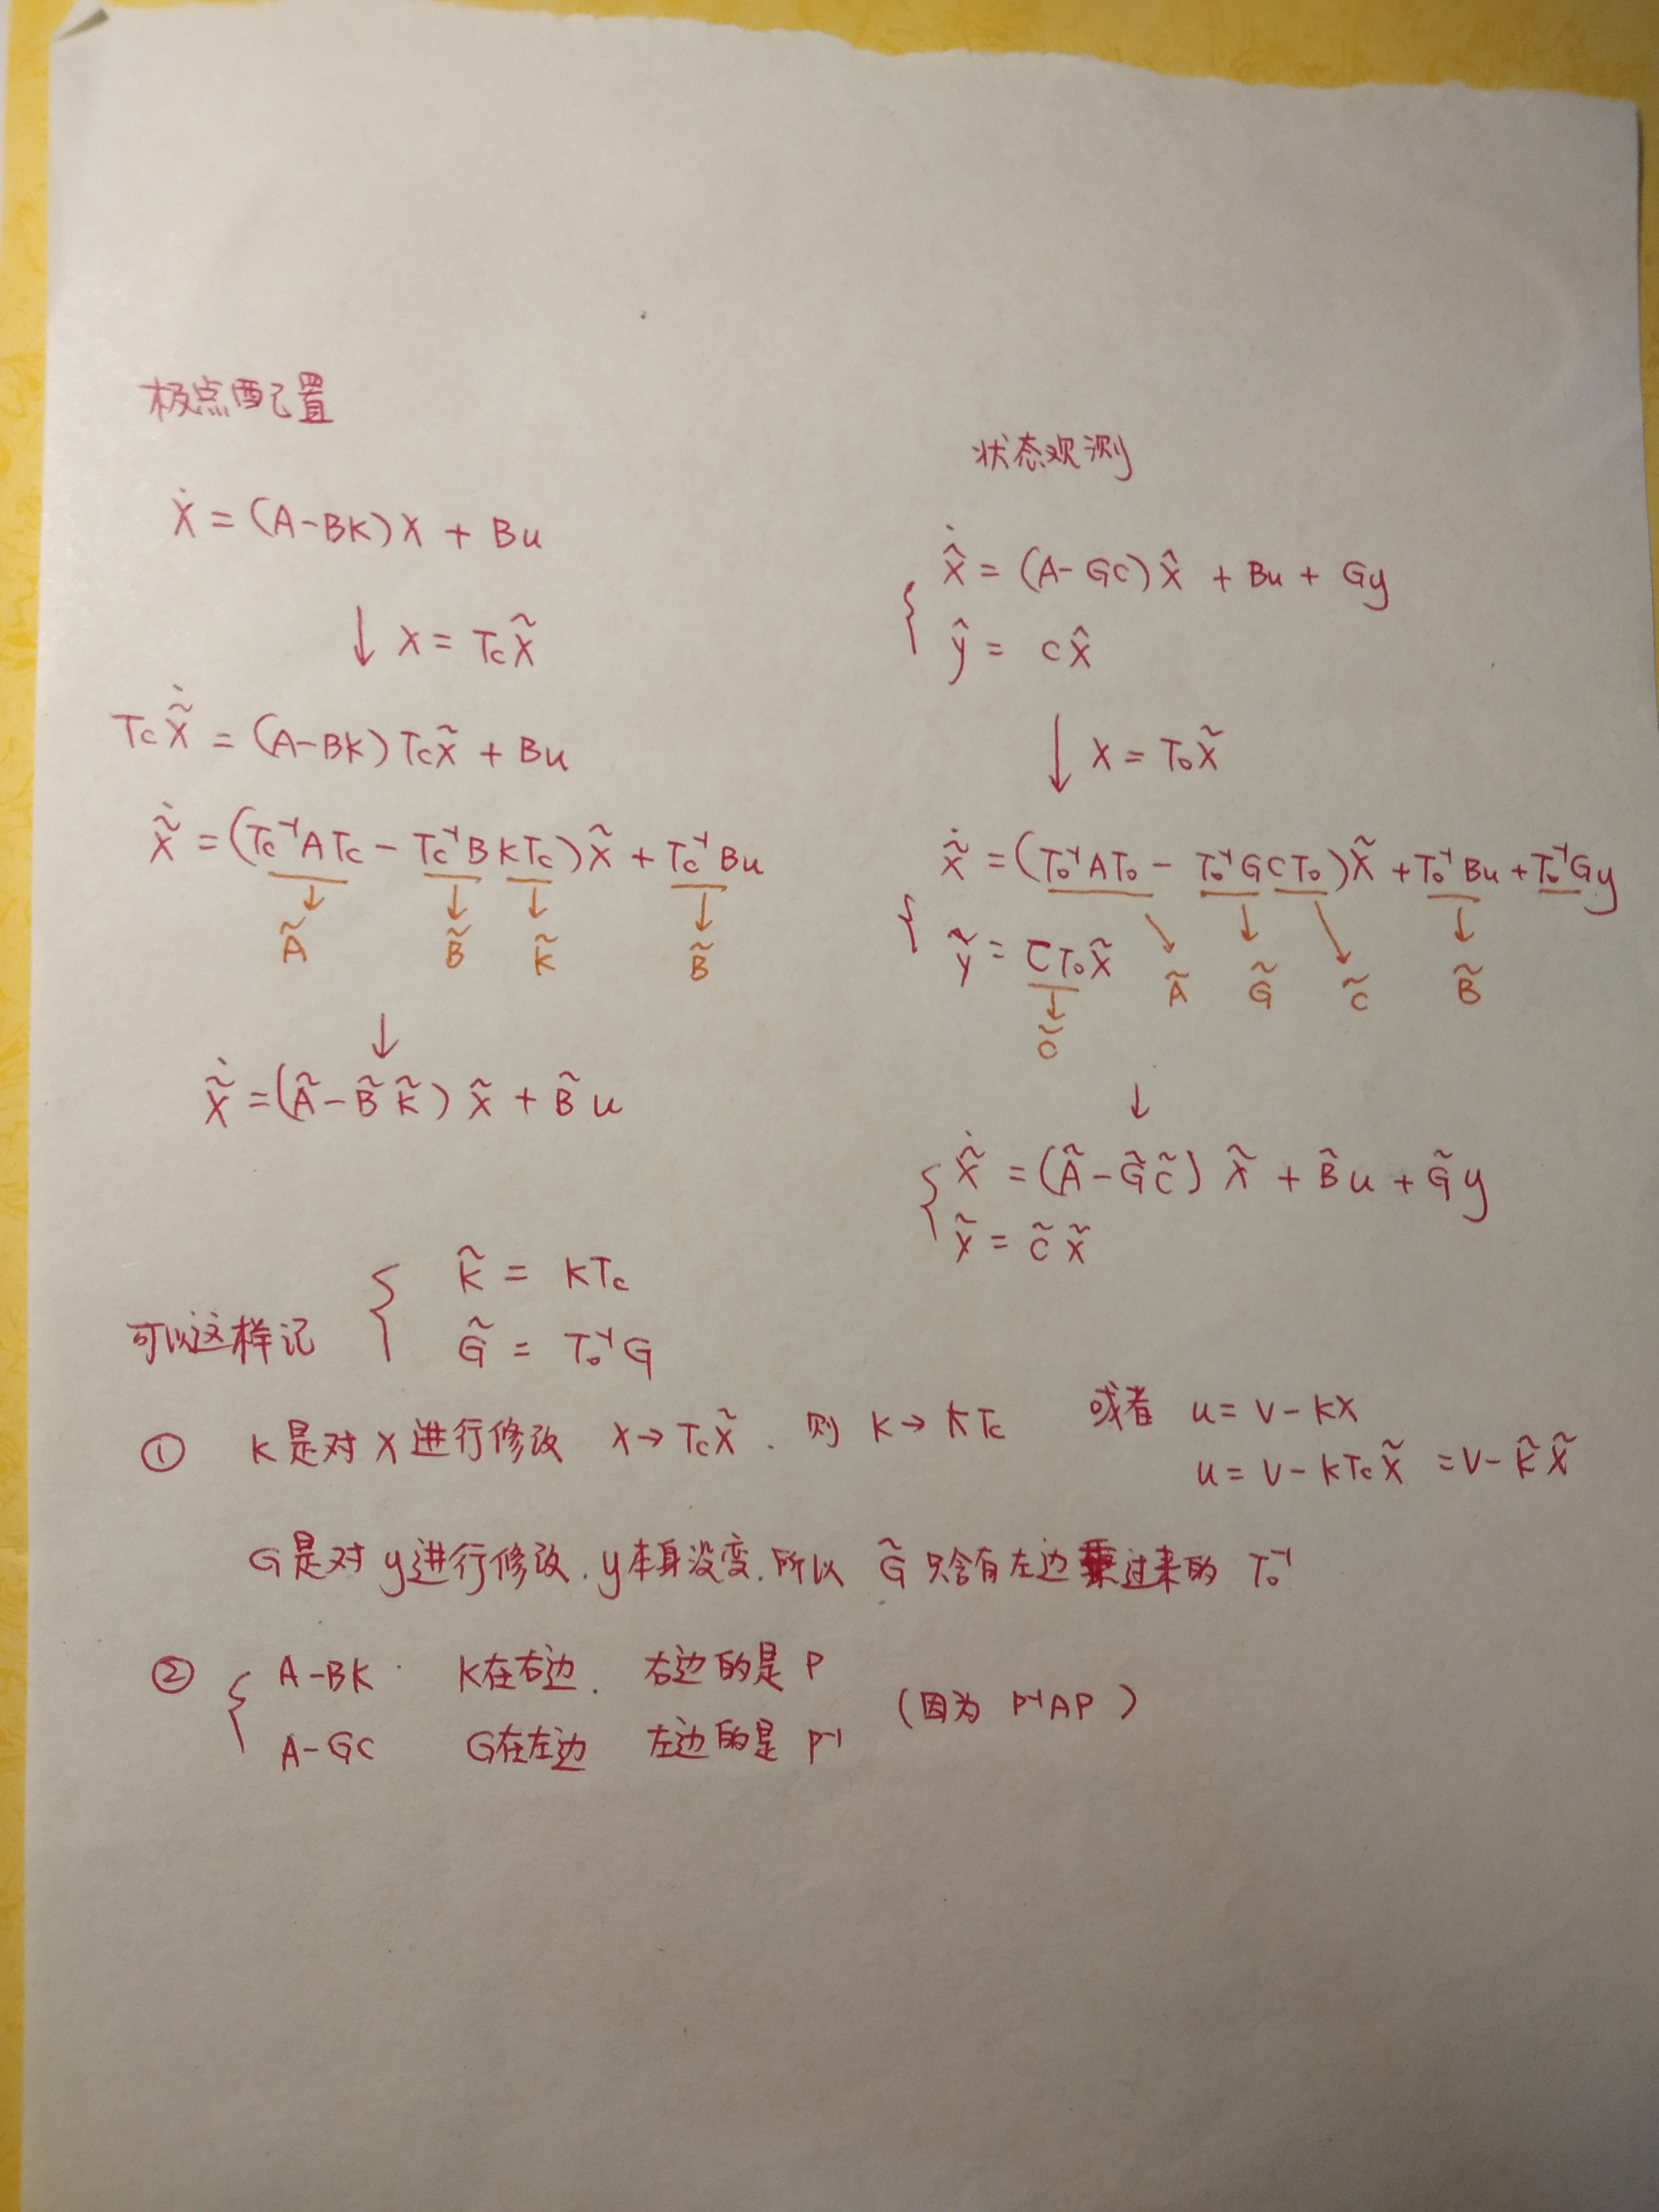 极点配置
ẋ = (A-BK)x + Bu
↓ x = Tc x̃
Tc x̃̇ = (A-BK)Tc x̃ + Bu
x̃̇ = (Tc⁻¹ATc - Tc⁻¹BKTc)x̃ + Tc⁻¹Bu
Ã B̃ K̃ B̃
↓
x̃̇ = (Ã-B̃K̃)x̃ + B̃u
状态观测
x̂̇ = (A-GC)x̂ + Bu + Gy
ŷ = Cx̂
↓ x = To x̃
x̃̇ = (To⁻¹ATo - To⁻¹GCTo)x̃ + To⁻¹Bu + To⁻¹Gy
ỹ = CTo x̃
Ã G̃ C̃ B̃
C̃
↓
x̃̇ = (Ã-G̃C̃)x̃ + B̃u + G̃y
x̃ = C̃x̃
可以这样记 { K̃ = KTc
G̃ = To⁻¹G
① K是对x进行修改 x→Tc x̃. 则 K→KTc 或者 u = v-Kx
u = v-KTc x̃ = v-K̃x̃
G是对y进行修改.y本身没变.所以 G̃只含有左边乘过来的 To⁻¹
② { A-BK K在右边. 右边的是 P
A-GC G在左边 左边的是 P⁻¹ (因为 P⁻¹AP)